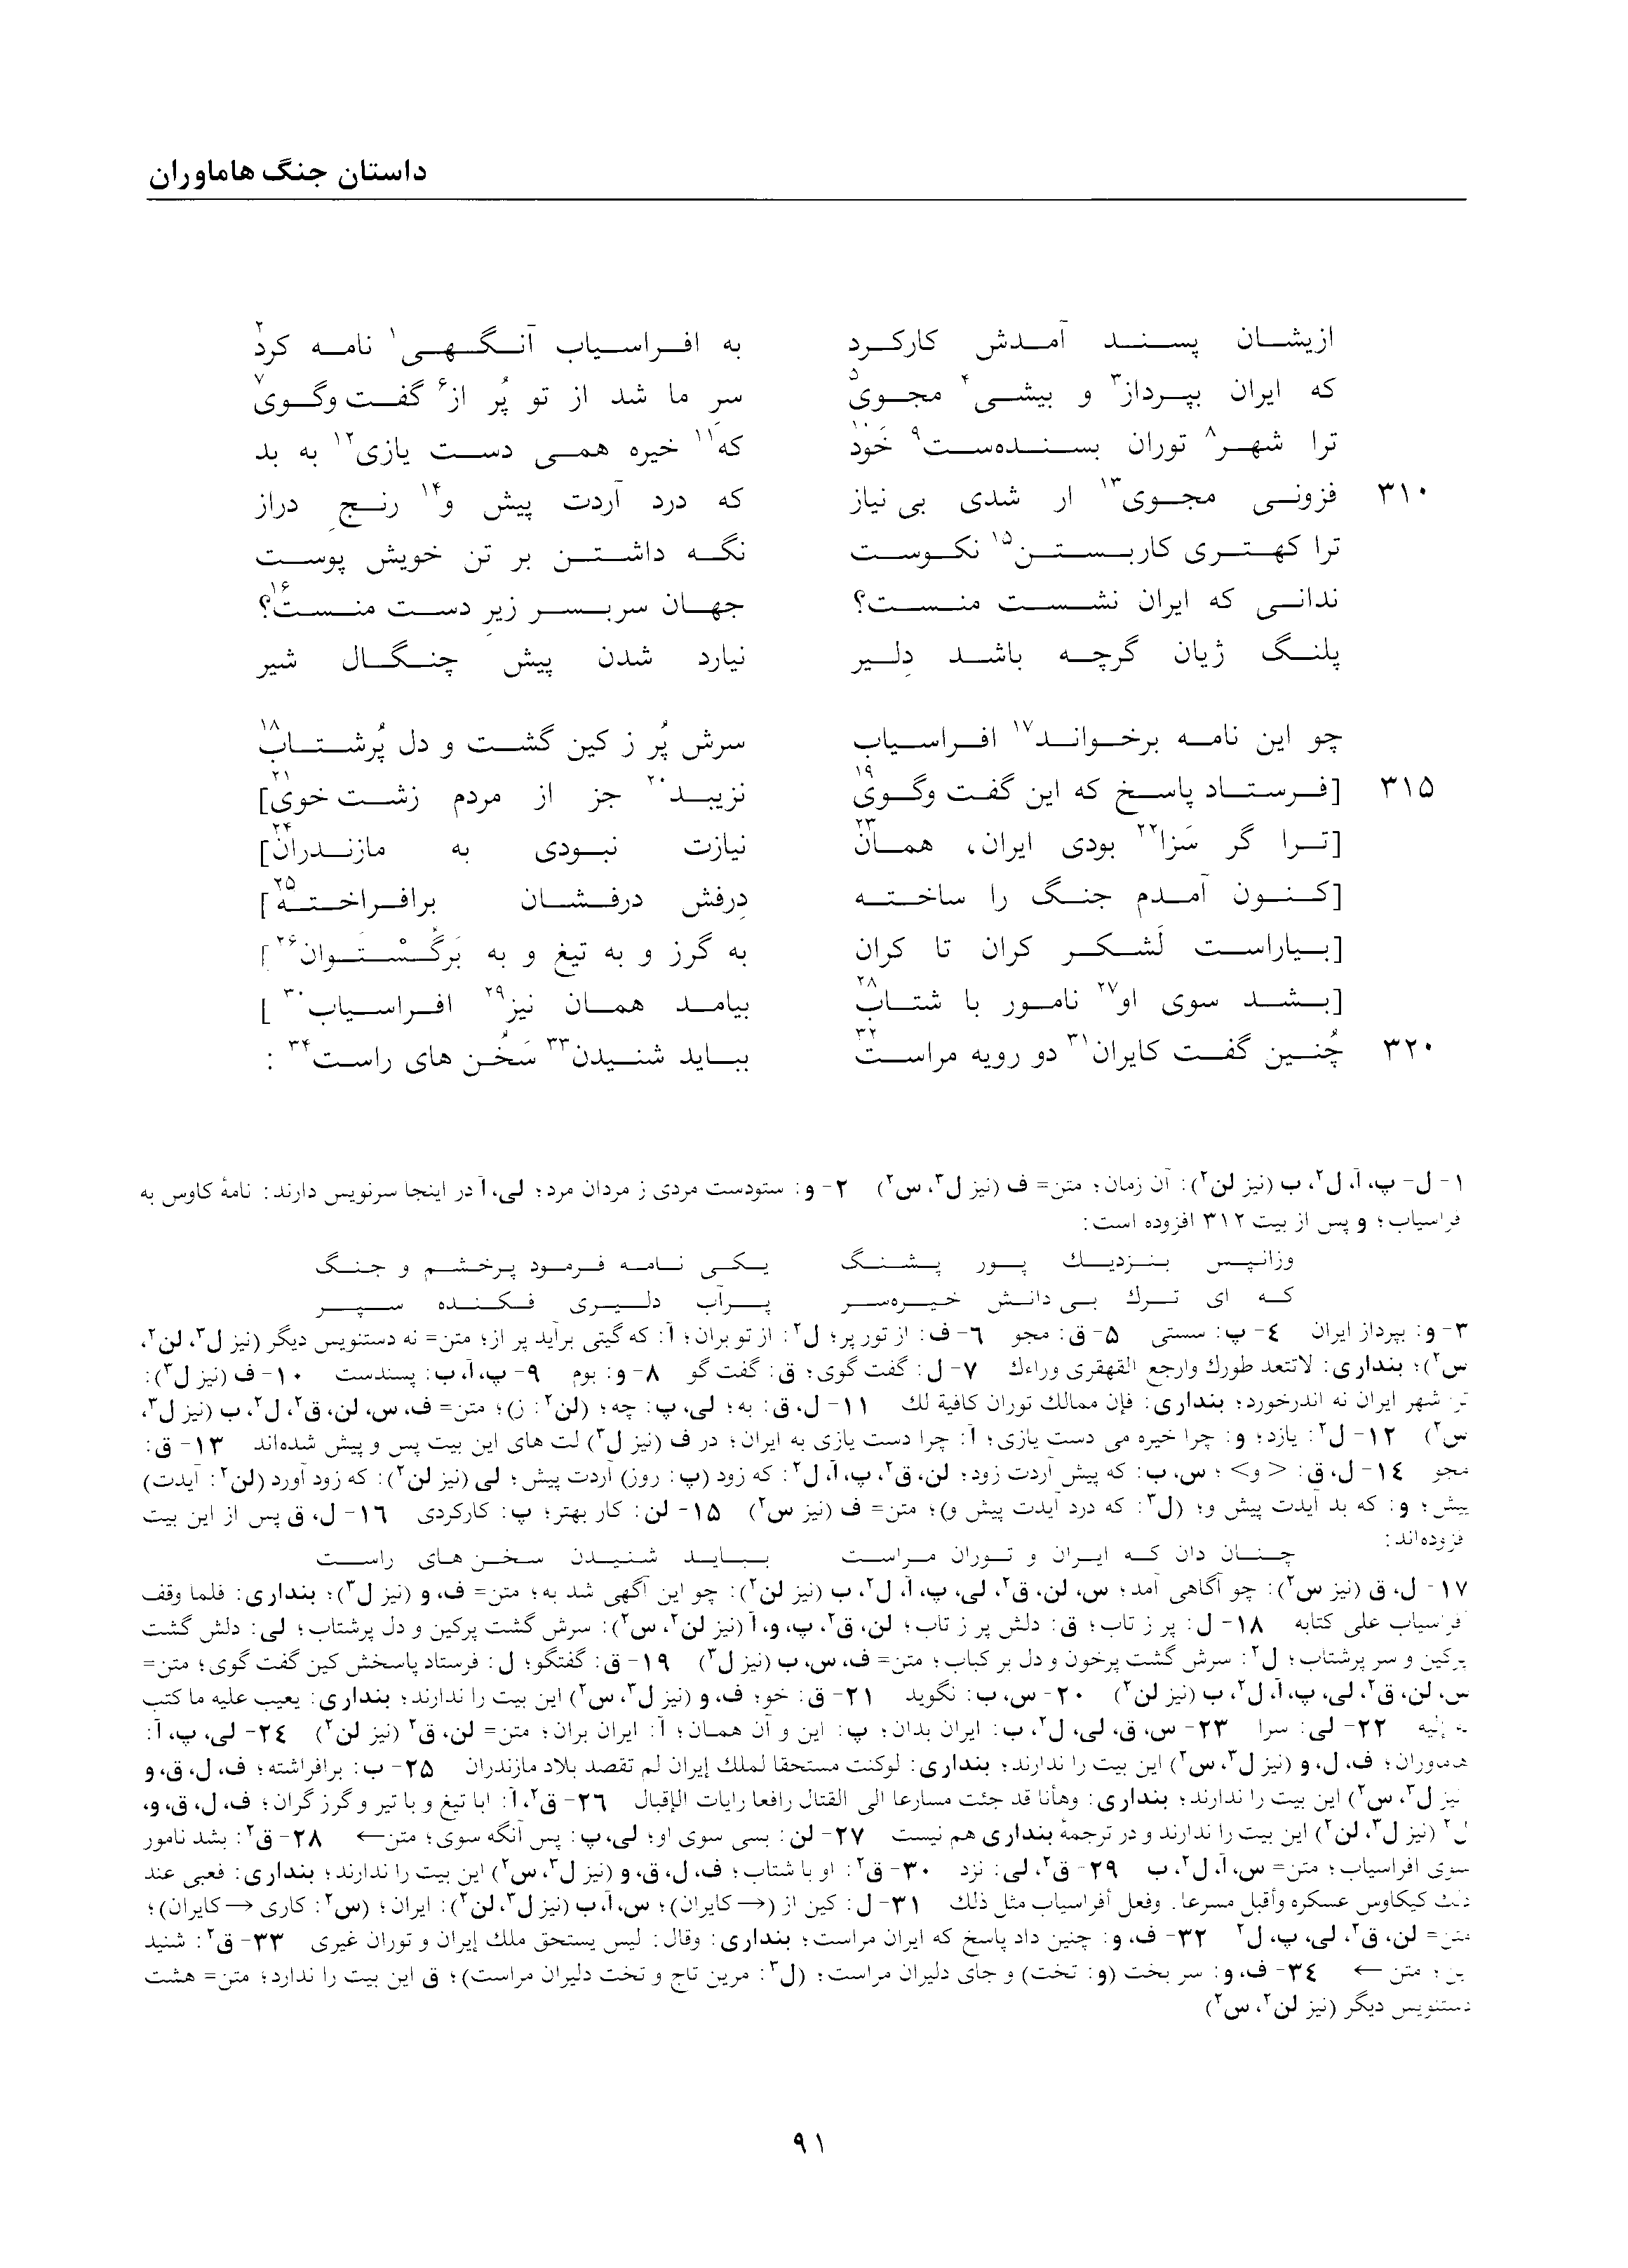 داستان جنگ هاماوران
ازیشان پسند آمدش کارکرد به افراسیاب آنگهی۱ نامه کرد۲
که ایران بپرداز۳ و بیشی۴ مجوی۵ سرِ ما شد از تو پُر از۶ گفت‌وگوی۷
ترا شهر۸ توران بسنده‌ست۹ خَود۱۰ که۱۱ خیره همی دست یازی۱۲ به بد
۳۱۰ فزونی مجوی۱۳ ار شدی بی‌نیاز که درد آردت پیش و۱۴ رنجِ دراز
ترا کهتری کاربستن۱۵ نکوست نگه داشتن بر تن خویش پوست
ندانی که ایران نشست منست؟ جهان سربسر زیرِ دست منست؟۱۶
پلنگ ژیان گرچه باشد دلِیر نیارد شدن پیش چنگال شیر
چو این نامه برخواند۱۷ افراسیاب سرش پُر ز کین گشت و دل پُرشتاب۱۸
۳۱۵ [فرستاد پاسخ که این گفت‌وگوی۱۹ نزیبد۲۰ جز از مردم زشت‌خوی]۲۱
[ترا گر سَزا۲۲ بودی ایران، همان۲۳ نیازت نبودی به مازندران]۲۴
[کنون آمدم جنگ را ساخته دِرفش درفشان برافراخته]۲۵
[بیاراست لَشکر کران تا کران به گرز و به تیغ و به بَرگُسْتَوان۲۶]
[بشد سوی او۲۷ نامور با شتاب۲۸ بیامد همان نیز۲۹ افراسیاب۳۰]
۳۲۰ چُنین گفت کایران۳۱ دو رویه مراست۳۲ بباید شنیدن۳۳ سَخُن‌های راست۳۴:
۱- ل- پ، آ، ل۲، ب (نیز لن۲): آن زمان؛ متن= ف (نیز ل۳، س۲) ۲- و: ستودست مردی ز مردان مرد؛ لی، آ در اینجا سرنویس دارند: نامهٔ کاوس به
فراسیاب؛ و پس از بیت ۳۱۲ افزوده است:
وزانپس بنزدیك پور پشنگ یکی نامه فرمود پرخشم و جنگ
که ای ترك بی‌دانش خیره‌سر پرآب دلیری فکنده سپر
۳- و: بپرداز ایران ۴- پ: سستی ۵- ق: مجو ۶- ف: از تور پر؛ ل۲: از تو بران؛ آ: که گیتی برآید پر از؛ متن= نه دستنویس دیگر (نیز ل۳، لن۲،
س۲)؛ بنداری: لاتتعد طورك وارجع القهقری وراءك ۷- ل: گفت گوی؛ ق: گفت گو ۸- و: بوم ۹- پ، آ، ب: پسندست ۱۰- ف (نیز ل۳):
شهر ایران نه اندرخورد؛ بنداری: فإن ممالك توران کافیة لك ۱۱- ل، ق: به؛ لی، پ: چه؛ (لن۲: ز)؛ متن= ف، س، لن، ق۲، ل۲، ب (نیز ل۳،
س۲) ۱۲- ل۲: یازد؛ و: چرا خیره می دست یازی؛ آ: چرا دست یازی به ایران؛ در ف (نیز ل۳) لت های این بیت پس و پیش شده‌اند ۱۳- ق:
مجو ۱۴- ل، ق: <و>؛ س، ب: که پیش آردت زود؛ لن، ق۲، پ، آ، ل۲: که زود (پ: روز) آردت پیش؛ لی (نیز لن۲): که زود آورد (لن۲: آیدت)
پیش؛ و: که بد آیدت پیش و؛ (ل۳: که درد آیدت پیش و)؛ متن= ف (نیز س۲) ۱۵- لن: کار بهتر؛ پ: کارکردی ۱۶- ل، ق پس از این بیت
فزوده‌اند:
چنان دان که ایران و توران مراست بباید شنیدن سخن‌های راست
۱۷- ل، ق (نیز س۲): چو آگاهی آمد؛ س، لن، ق۲، لی، پ، آ، ل۲، ب (نیز لن۲): چو این آگهی شد به؛ متن= ف، و (نیز ل۳)؛ بنداری: فلما وقف
فراسیاب علی کتابه ۱۸- ل: پر ز تاب؛ ق: دلش پر ز تاب؛ لن، ق۲، پ، و، آ (نیز لن۲، س۲): سرش گشت پرکین و دل پرشتاب؛ لی: دلش گشت
پرکین و سر پرشتاب؛ ل۲: سرش گشت پرخون و دل بر کباب؛ متن= ف، س، ب (نیز ل۳) ۱۹- ق: گفتگو؛ ل: فرستاد پاسخش کین گفت گوی؛ متن=
س، لن، ق۲، لی، پ، آ، ل۲، ب (نیز لن۲) ۲۰- س، ب: نگوید ۲۱- ق: خو؛ ف، و (نیز ل۳، س۲) این بیت را ندارند؛ بنداری: یعیب علیه ما کتب
به إلیه ۲۲- لی: سرا ۲۳- س، ق، لی، ل۲، ب: ایران بدان؛ پ: این و آن همان؛ آ: ایران بران؛ متن= لن، ق۲ (نیز لن۲) ۲۴- لی، پ، آ:
هاموران؛ ف، ل، و (نیز ل۳، س۲) این بیت را ندارند؛ بنداری: لوکنت مستحقا لملك إیران لم تقصد بلاد مازندران ۲۵- ب: برافراشته؛ ف، ل، ق، و
نیز ل۳، س۲) این بیت را ندارند؛ بنداری: وهأنا قد جئت مسارعا الی القتال رافعا رایات الإقبال ۲۶- ق۲، آ: ابا تیغ و با تیر و گرز گران؛ ف، ل، ق، و،
ل۲ (نیز ل۳، لن۲) این بیت را ندارند و در ترجمهٔ بنداری هم نیست ۲۷- لن: بسی سوی او؛ لی، پ: پس آنگه سوی؛ متن← ۲۸- ق۲: بشد نامور
سوی افراسیاب؛ متن= س، آ، ل۲، ب ۲۹- ق۲، لی: نزد ۳۰- ق۲: او با شتاب؛ ف، ل، ق، و (نیز ل۳، س۲) این بیت را ندارند؛ بنداری: فعبی عند
ذلك کیکاوس عسکره وأقبل مسرعا. وفعل أفراسیاب مثل ذلك ۳۱- ل: کین از (→ کایران)؛ س، آ، ب (نیز ل۳، لن۲): ایران؛ (س۲: کاری → کایران)؛
متن= لن، ق۲، لی، پ، ل۲ ۳۲- ف، و: چنین داد پاسخ که ایران مراست؛ بنداری: وقال: لیس یستحق ملك إیران و توران غیری ۳۳- ق۲: شنید
ین؛ متن ← ۳۴- ف، و: سر بخت (و: تخت) و جای دلیران مراست؛ (ل۳: مرین تاج و تخت دلیران مراست)؛ ق این بیت را ندارد؛ متن= هشت
دستنویس دیگر (نیز لن۲، س۲)
۹۱